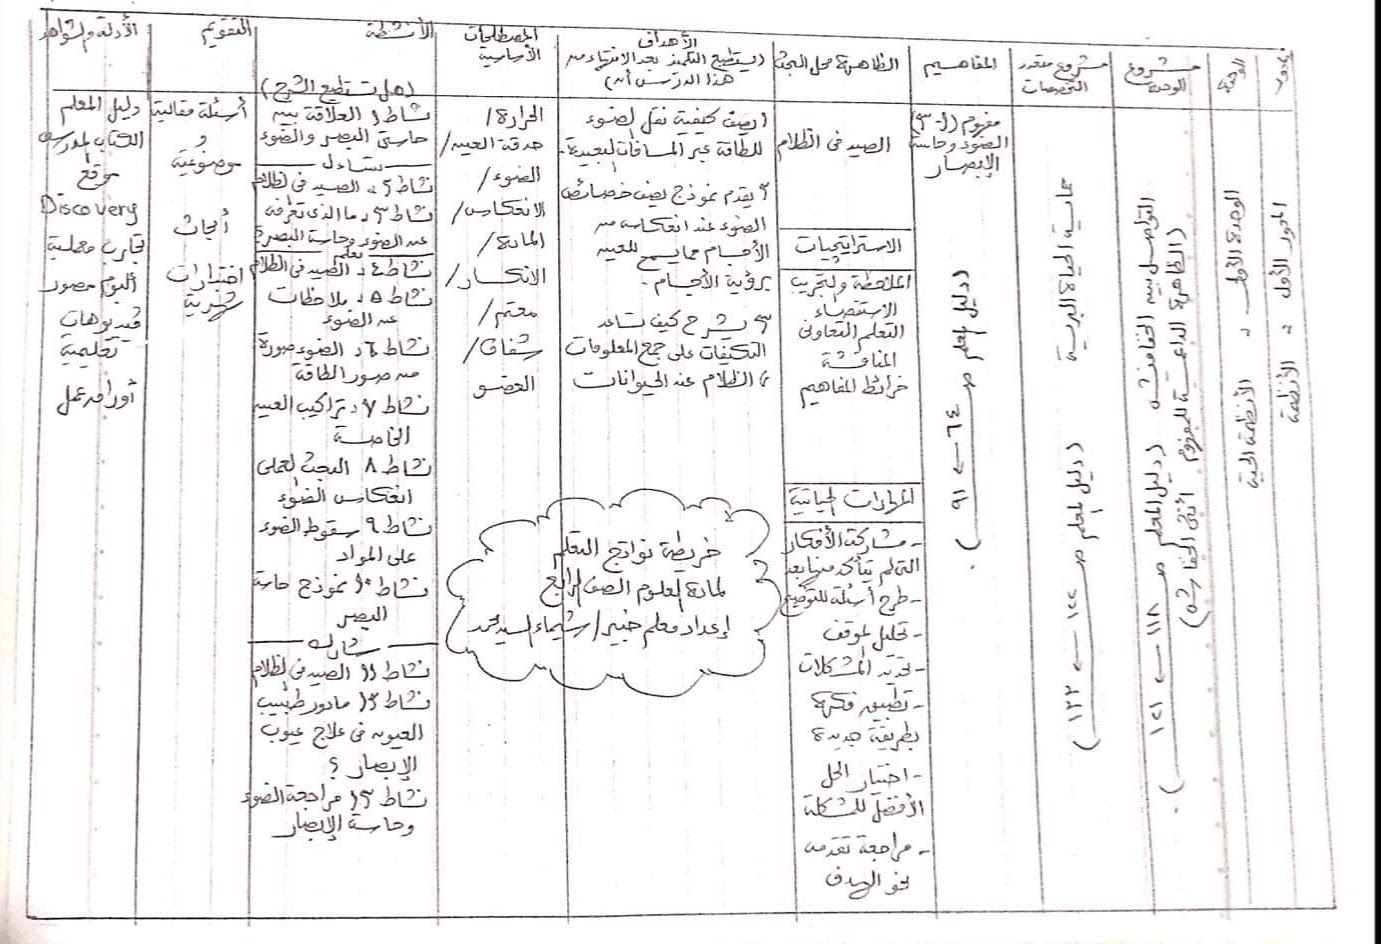 المحور
الوحدة
مشروع
الوحدة
مشروع متعدد
التخصصات
المفاهيم
الظاهرة محل البحث
الأهداف
(يستطيع التلميذ بعد الانتهاء من
هذا الدرس أن)
المصطلحات
الأساسية
الأنشطة
التقويم
الأدلة والشواهد
المحور الأول : الأنظمة
الوحدة الأولى : الأنظمة الحية
التواصل بين الخفافيش (دليل المعلم ص ١١٨ ← ١٢١)
(الظاهرة الداعمة للمفهوم أنثى الخفاش)
حماية الحياة البرية (دليل المعلم ص ١٢٢ ← ١٣٣)
مفهوم (١-٣)
الضوء وحاسة
الإبصار
(دليل المعلم ص ٦٤ ← ٩١)
الصيد في الظلام
الاستراتيجيات
الملاحظة والتجريب
الاستقصاء
التعلم التعاوني
المناقشة
خرائط المفاهيم
المهارات الحياتية
- مشاركة الأفكار
التي لم يتأكد منها بعد
- طرح أسئلة للتوضيح
- تحليل الموقف
- تحديد المشكلات
- تطبيق فكرة
بطريقة جديدة
- اختيار الحل
الأفضل للمشكلة
- مراجعة تقدمه
نحو الهدف
١ يصف كيفية نقل الضوء
للطاقة عبر المسافات البعيدة.
٢ يقدم نموذج يصف خصائص
الضوء عند انعكاسه من
الأجسام مما يسمح للعين
برؤية الأجسام.
٣ يشرح كيف تساعد
التكيفات على جمع المعلومات
في الظلام عند الحيوانات
الحرارة/
حدقة العين/
الضوء/
الانعكاس/
المادة/
الانكسار/
معتم/
شفاف/
العضو
(هل تستطيع الشرح)
نشاط ١ العلاقة بين
حاستي البصر والضوء
تساءل
نشاط ٢ : الصيد في الظلام
نشاط ٣ : ما الذي تعرفه
عن الضوء وحاسة البصر؟
تعلم
نشاط ٤ : الصيد في الظلام
نشاط ٥ : ملاحظات
عن الضوء
نشاط ٦ : الضوء صورة
من صور الطاقة
نشاط ٧ : تراكيب العين
الخاصة
نشاط ٨ البحث العملي
انعكاس الضوء
نشاط ٩ سقوط الضوء
على المواد
نشاط ١٠ نموذج حاسة
البصر
شارك
نشاط ١١ الصيد في الظلام
نشاط ١٢ مادور طبيب
العيون في علاج عيوب
الإبصار؟
نشاط ١٣ مراجعة الضوء
وحاسة الإبصار
أسئلة مقالية
و
موضوعية
أبحاث
اختبارات
شهرية
دليل المعلم
الكتاب المدرسي
موقع
Discovery
تجارب معملية
ألبوم مصور
فيديوهات
تعليمية
أوراق عمل
خريطة نواتج التعلم
لمادة العلوم الصف الرابع
إعداد معلم خبير / شيماء السيد محمد